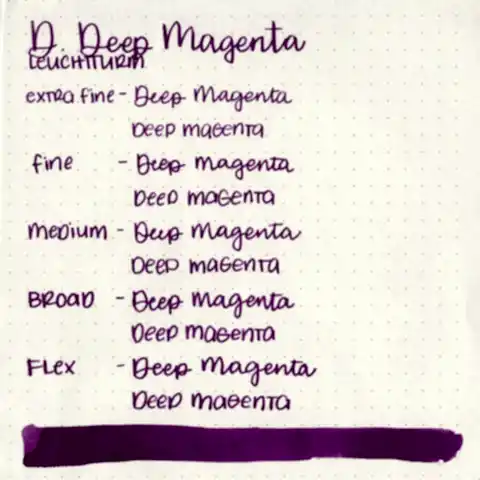 D. Deep Magenta
LEUCHTTURM
extra fine - Deep Magenta
Deep magenta
fine - Deep magenta
Deep magenta
medium - Deep Magenta
Deep magenta
Broad - Deep Magenta
Deep magenta
Flex - Deep Magenta
Deep magenta